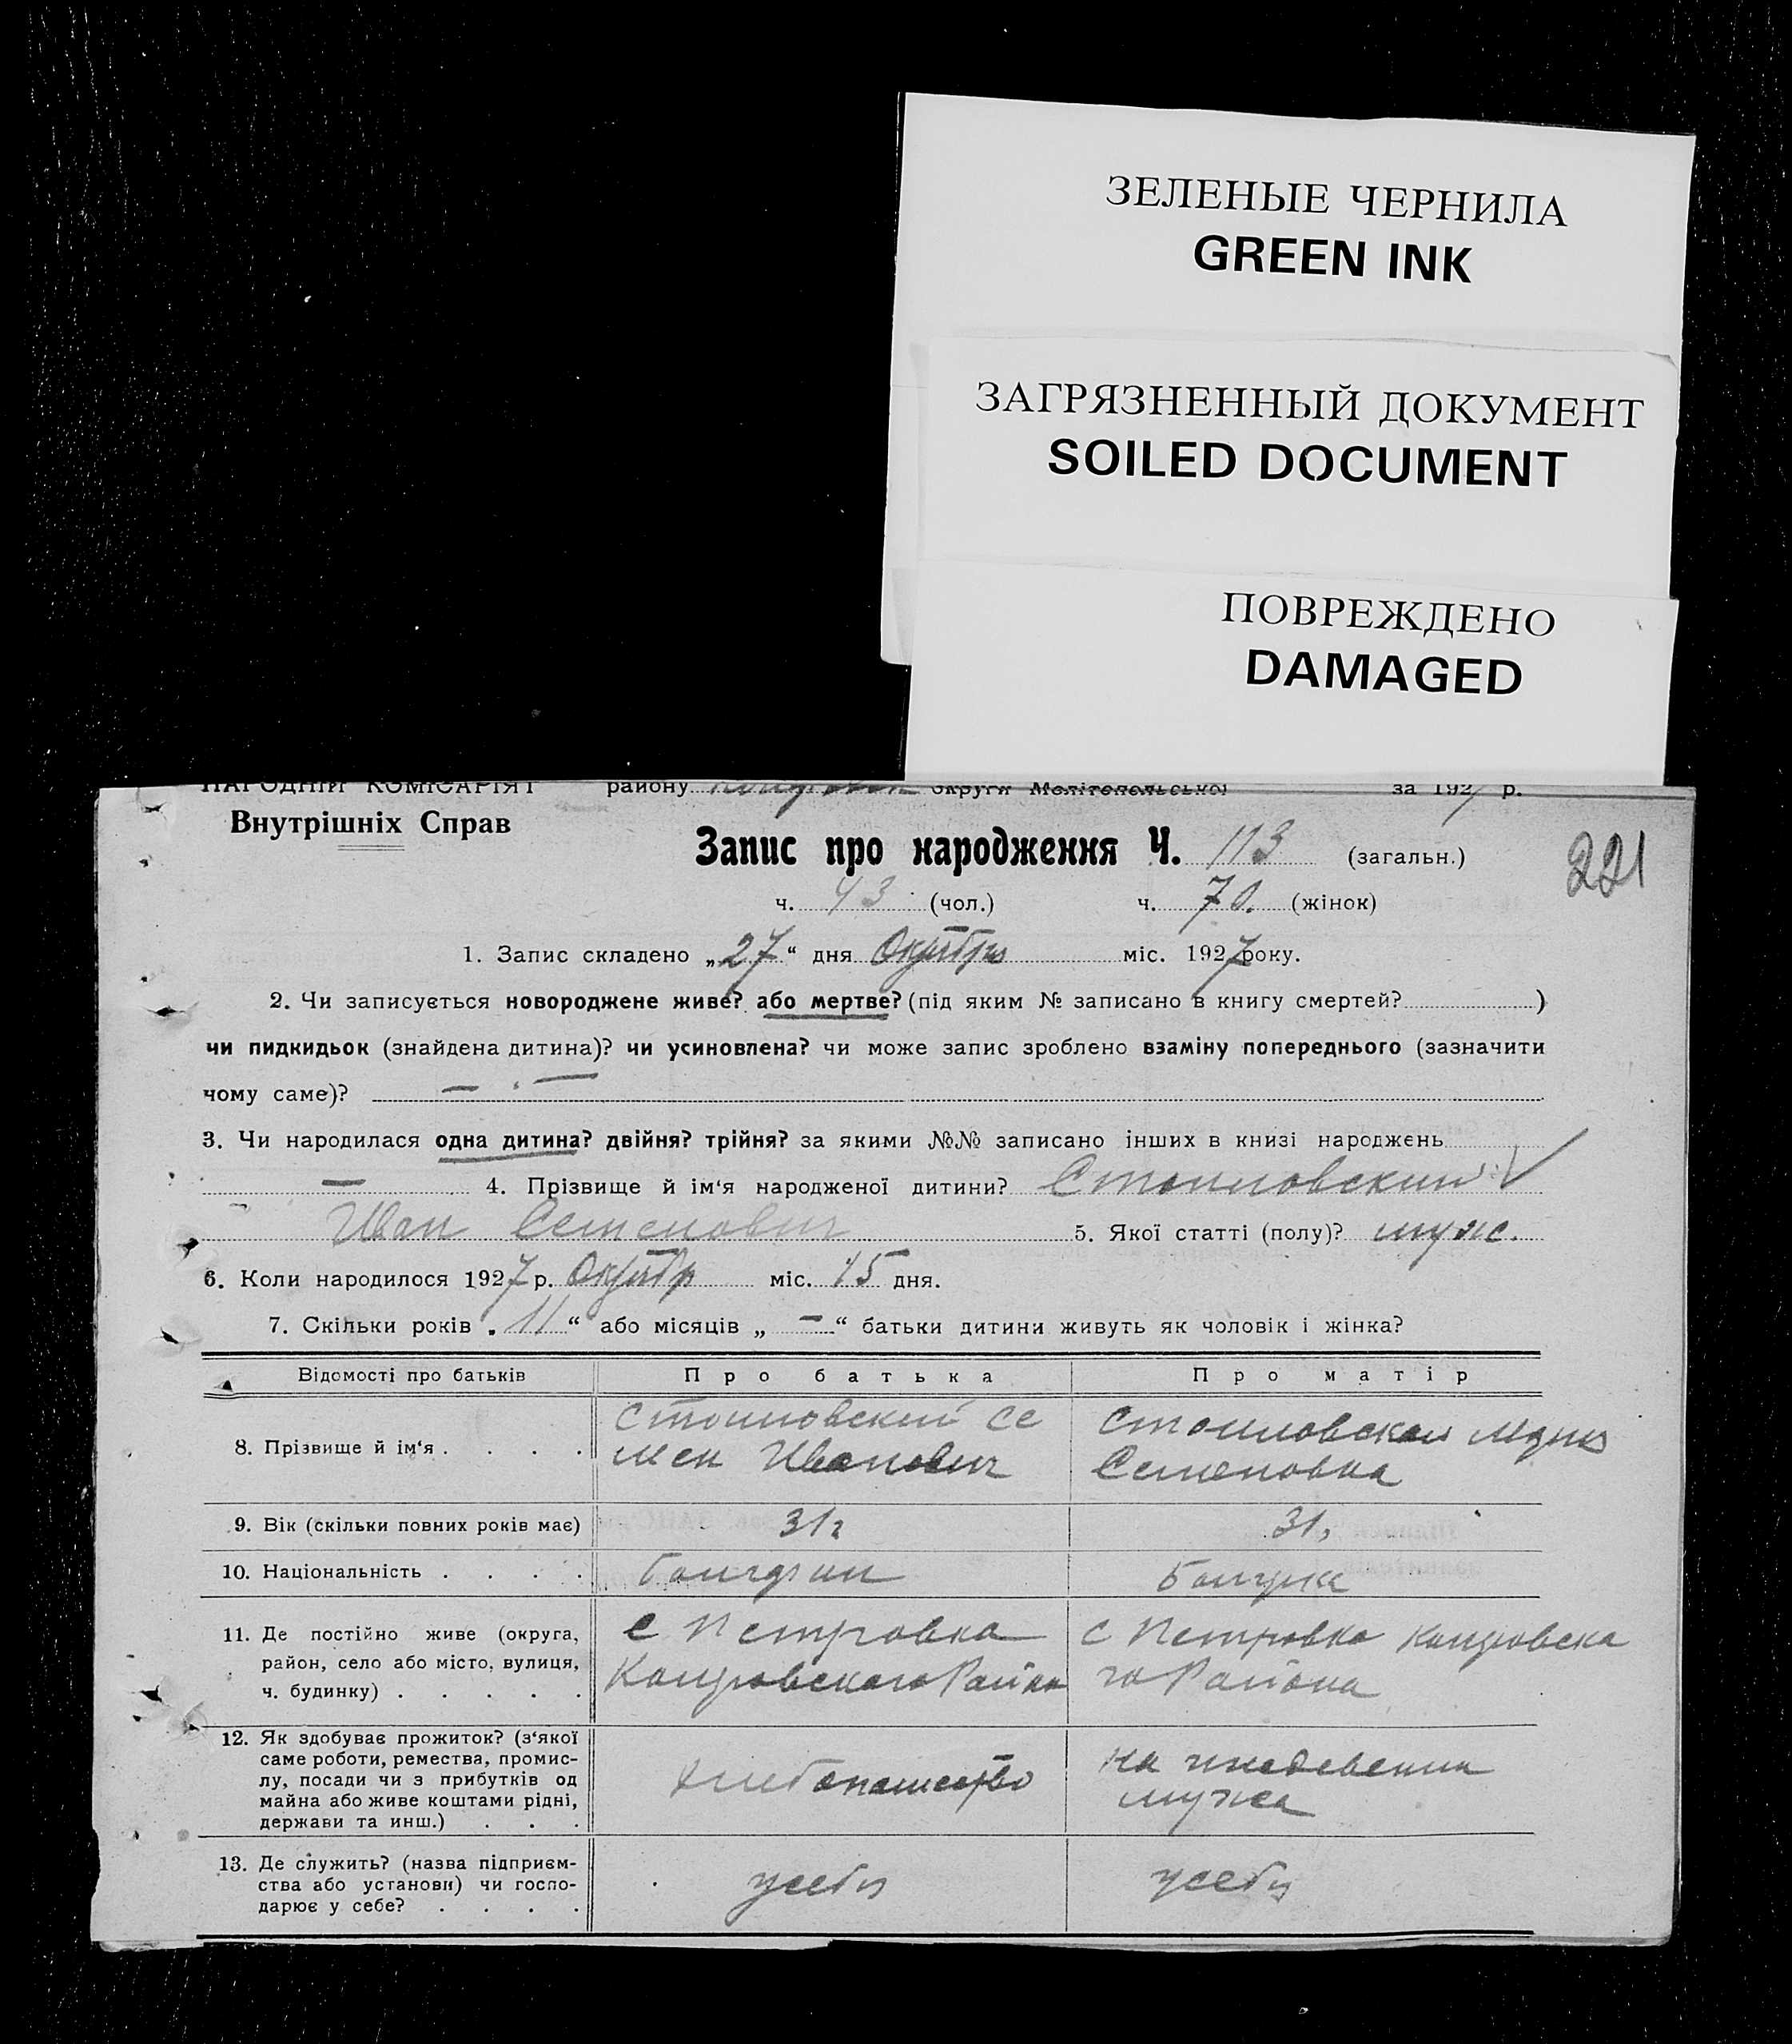 ЗЕЛЕНЫЕ ЧЕРНИЛА
GREEN INK
ЗАГРЯЗНЕННЫЙ ДОКУМЕНТ
SOILED DOCUMENT
ПОВРЕЖДЕНО
DAMAGED
НАРОДНІЙ КОМІСАРІЯТ району округи Мелітопольської за 1927 р.
Внутрішніх Справ
Запис про народження Ч. 113 (загальн.)
221
ч. 43 (чол.) ч. 70. (жінок)
1. Запис складено „27“ дня Октября міс. 1927 року.
2. Чи записується новороджене живе? або мертве? (під яким № записано в книгу смертей? )
чи пидкидьок (знайдена дитина)? чи усиновлена? чи може запис зроблено взаміну попереднього (зазначити
чому саме)? — . —
3. Чи народилася одна дитина? двійня? трійня? за якими №№ записано інших в книзі народжень
— 4. Прізвище й ім‘я народженої дитини? Стоиловский
Иван Семенович 5. Якої статті (полу)? муж.
6. Коли народилося 1927 р. Октябр міс. 15 дня.
7. Скільки років „ 11 “ або місяців „ — “ батьки дитини живуть як чоловік і жінка?
Відомості про батьків Про батька Про матір
8. Прізвище й ім‘я . . . . Стоиловский Се
мен Иванович
Стоиловская Мария
Семеновна
9. Вік (скільки повних років має) 31 г 31,
10. Національність . . . . болгарин Болгарка
11. Де постійно живе (округа,
район, село або місто, вулиця,
ч. будинку) . . . . .
с Петровка
Конгровского Района
с Петровка Конгровска
го Района
12. Як здобуває прожиток? (з‘якої
саме роботи, ремества, промис-
лу, посади чи з прибутків од
майна або живе коштами рідні,
держави та инш.) . . .
хлебопашество
на иждевении
мужа
13. Де служить? (назва підприєм-
ства або установи) чи госпо-
дарює у себе? . . . .
у себя
у себя